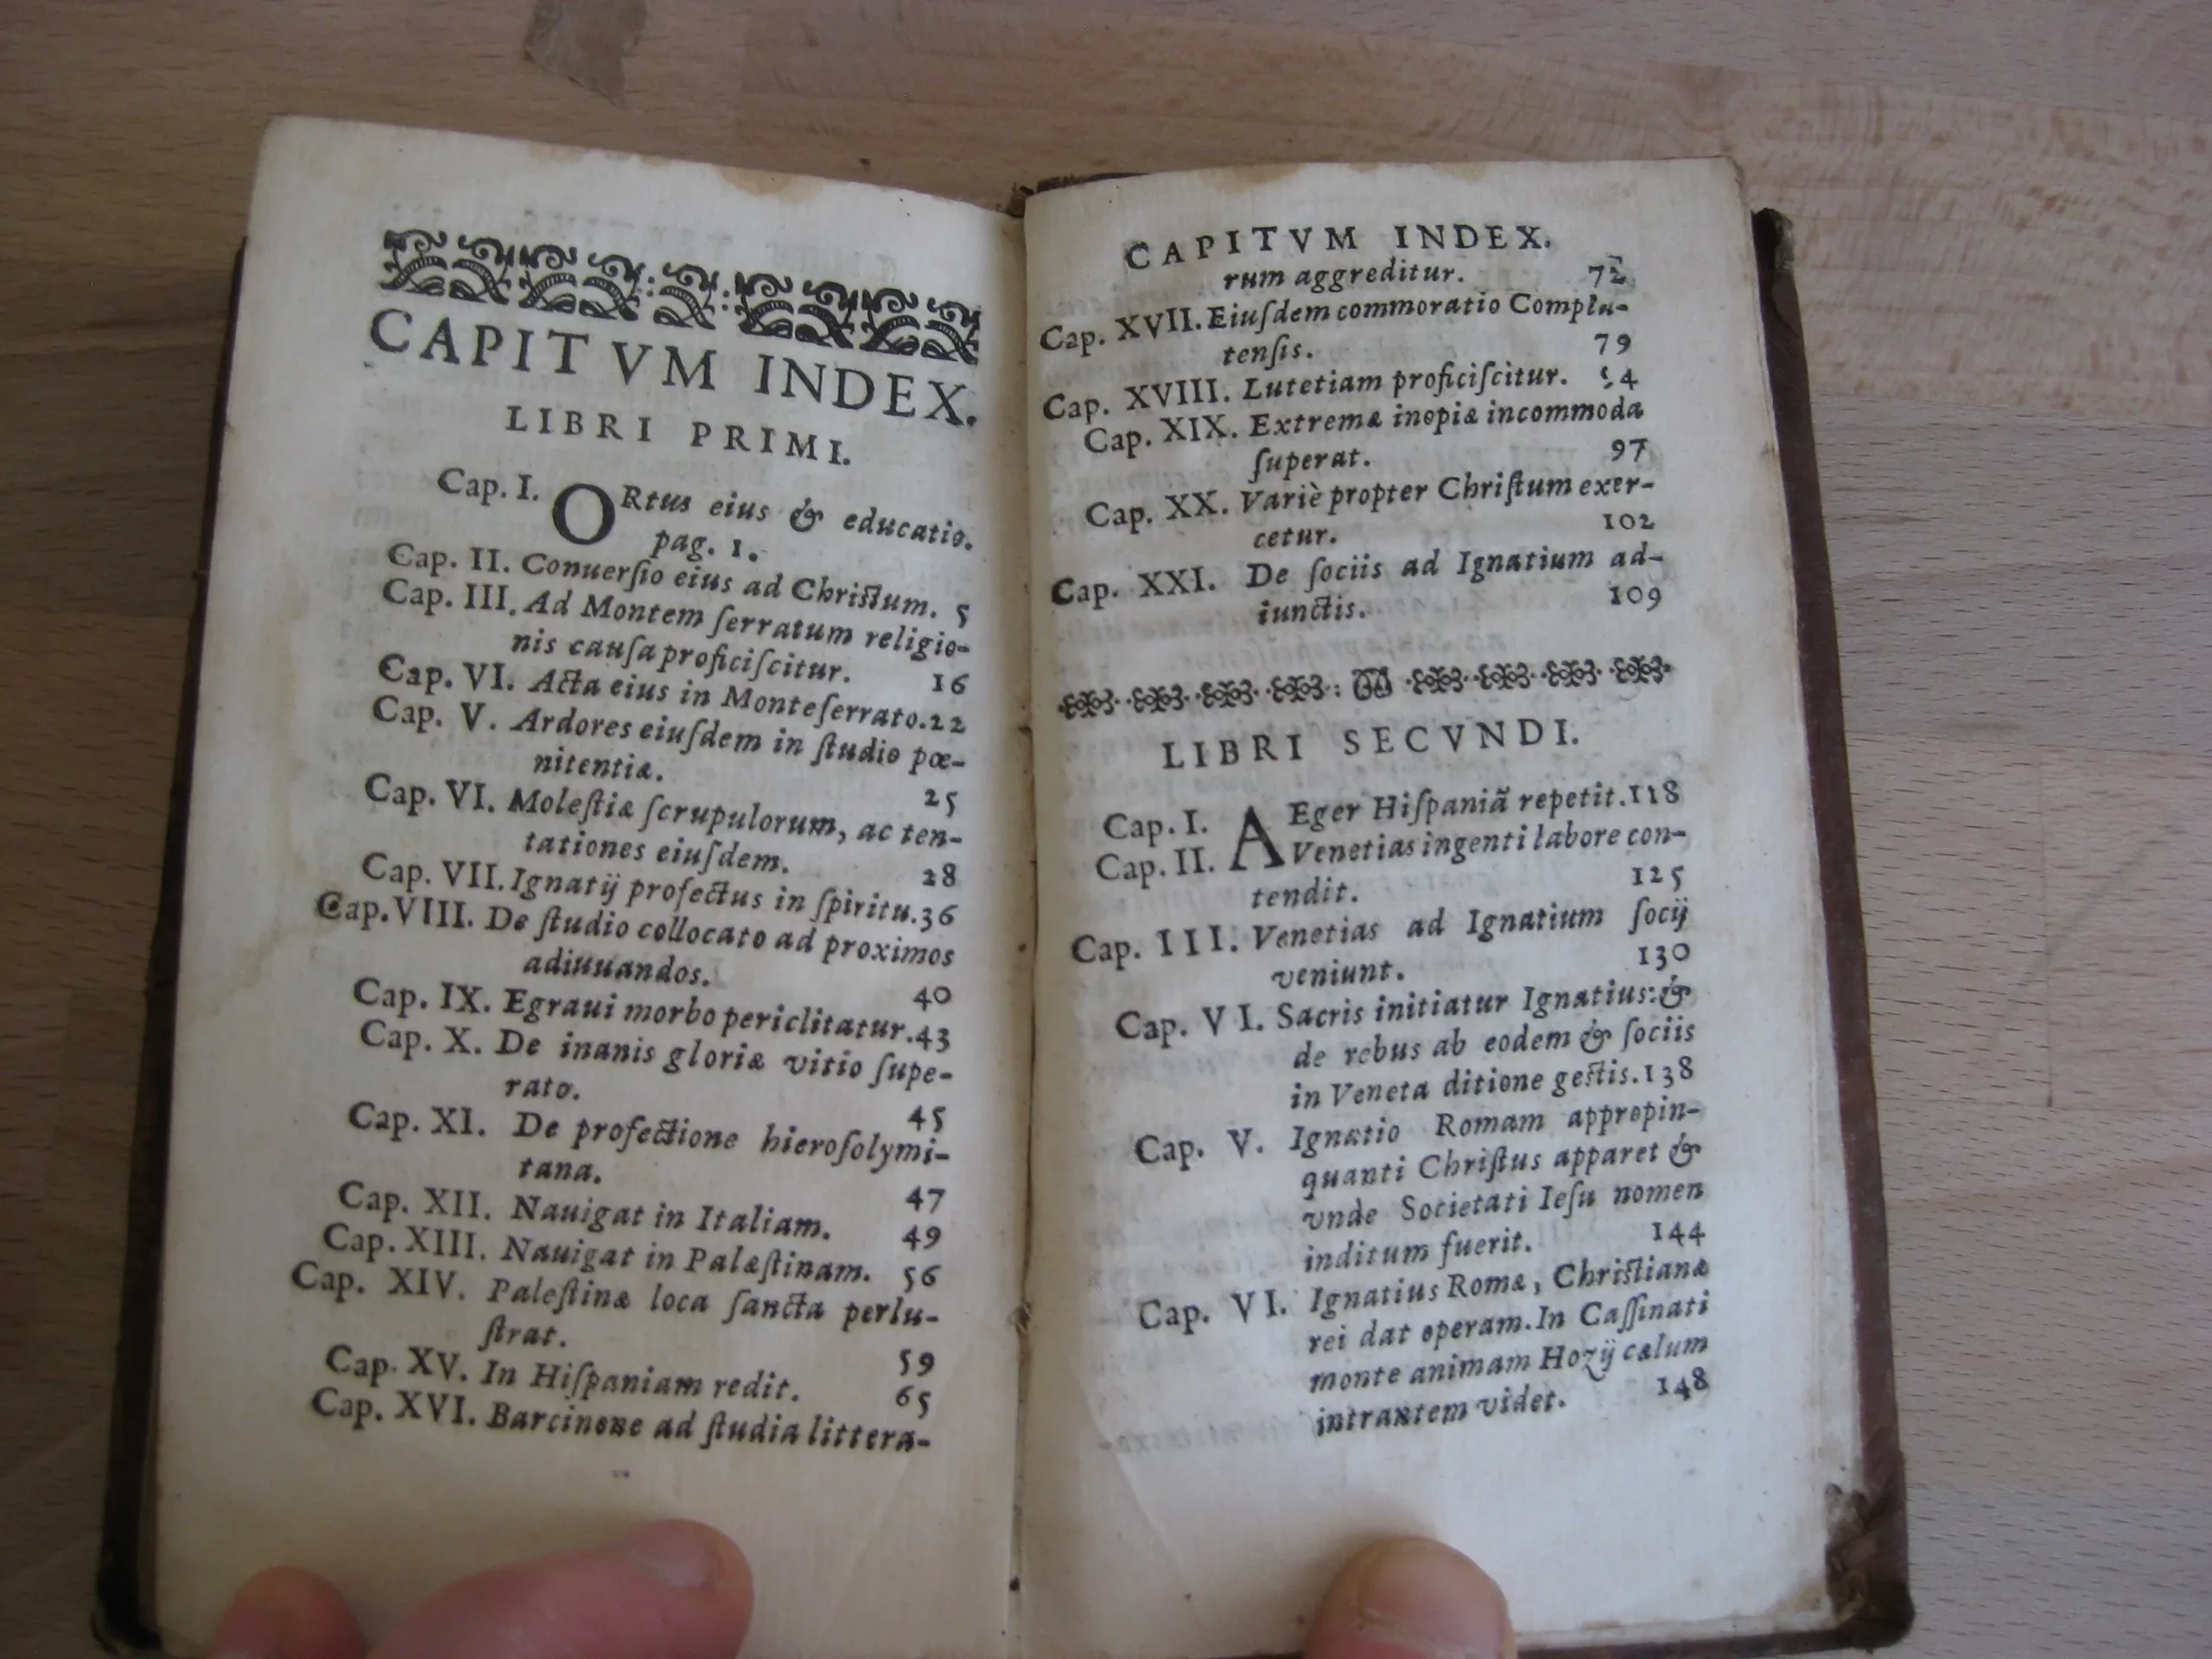 CAPITVM INDEX.
LIBRI PRIMI.
Cap. I. ORtus eius & educatio.
pag. 1.
Cap. II. Conuerſio eius ad Chriſtum. 5
Cap. III. Ad Montem ſerratum religio-
nis cauſa proficiſcitur. 16
Cap. VI. Acta eius in Monteſerrato. 22
Cap. V. Ardores eiuſdem in ſtudio pœ-
nitentiæ. 25
Cap. VI. Moleſtiæ ſcrupulorum, ac ten-
tationes eiuſdem. 28
Cap. VII. Ignatij profectus in ſpiritu. 36
Cap. VIII. De ſtudio collocato ad proximos
adiuuandos. 40
Cap. IX. Egraui morbo periclitatur. 43
Cap. X. De inanis gloriæ vitio ſupe-
rato. 45
Cap. XI. De profectione hieroſolymi-
tana. 47
Cap. XII. Nauigat in Italiam. 49
Cap. XIII. Nauigat in Palæſtinam. 56
Cap. XIV. Paleſtinæ loca ſancta perlu-
ſtrat. 59
Cap. XV. In Hiſpaniam redit. 65
Cap. XVI. Barcinone ad ſtudia littera-
CAPITVM INDEX.
rum aggreditur. 72
Cap. XVII. Eiuſdem commoratio Complu-
tenſis. 79
Cap. XVIII. Lutetiam proficiſcitur.
Cap. XIX. Extremæ inopiæ incommoda
ſuperat. 97
Cap. XX. Variè propter Chriſtum exer-
cetur. 102
Cap. XXI. De ſociis ad Ignatium ad-
iunctis. 109
LIBRI SECVNDI.
Cap. I. AEger Hiſpaniã repetit. 118
Cap. II. Venetias ingenti labore con-
tendit. 125
Cap. III. Venetias ad Ignatium ſocij
veniunt. 130
Cap. VI. Sacris initiatur Ignatius: &
de rebus ab eodem & ſociis
in Veneta ditione geſtis. 138
Cap. V. Ignatio Romam appropin-
quanti Chriſtus apparet &
vnde Societati Ieſu nomen
inditum fuerit. 144
Cap. VI. Ignatius Romæ, Chriſtianæ
rei dat operam. In Caſſinati
monte animam Hozij cælum
intrantem videt. 148